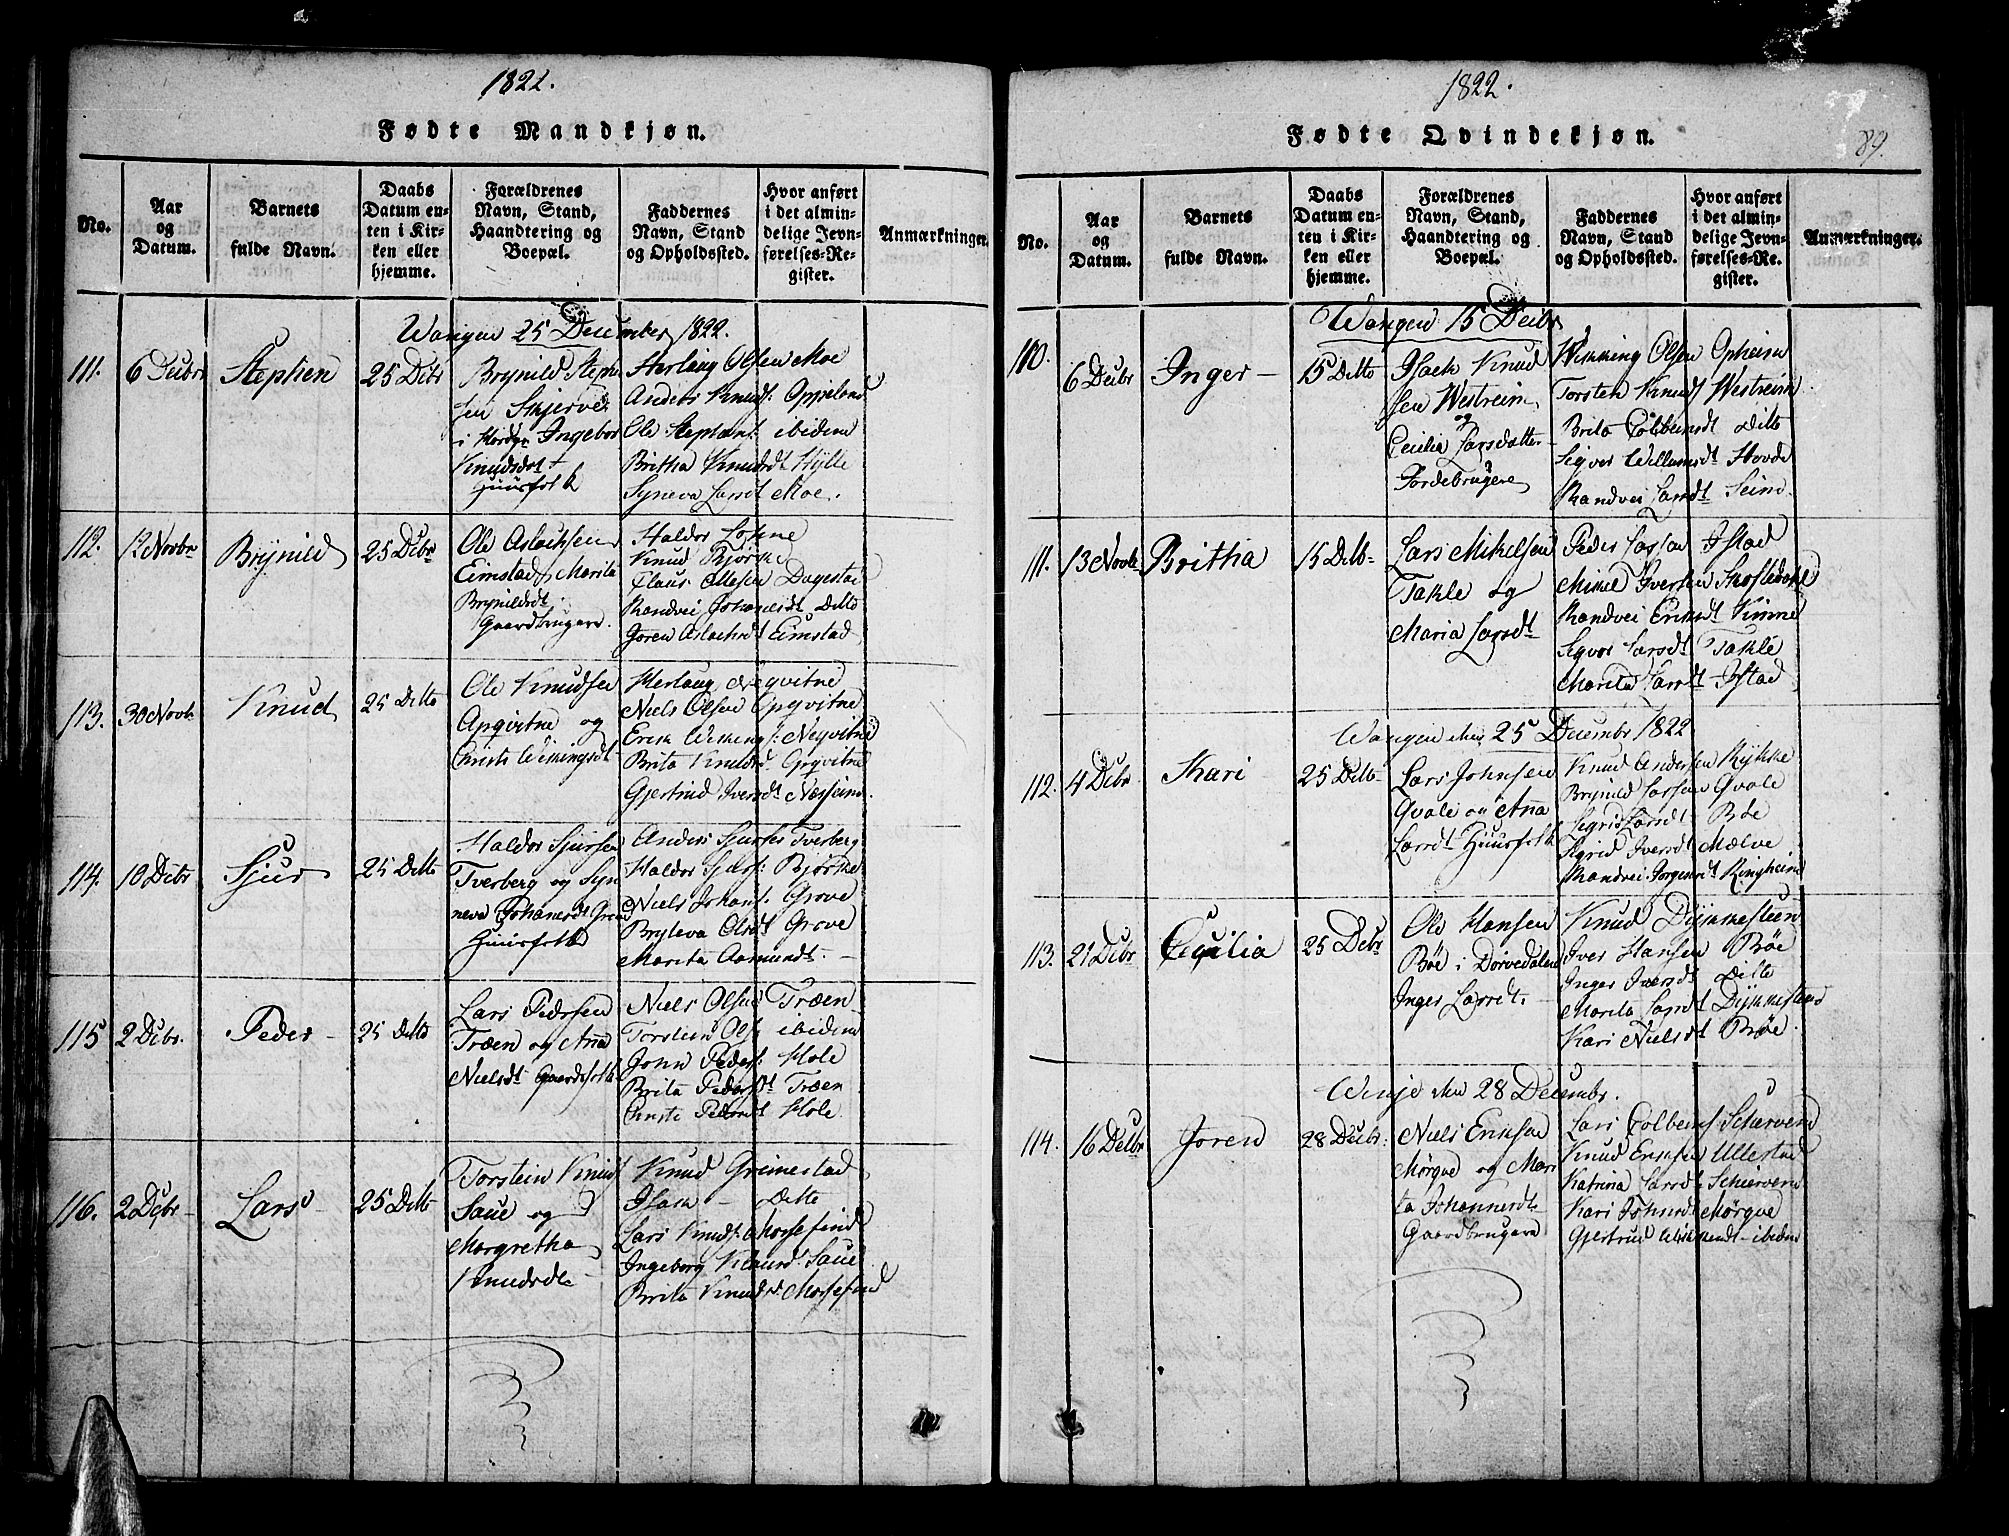 1822.
Fødte Mandkjøn.
No.
Aar
og
Datum.
Barnets
fulde Navn.
Daabs
Datum en-
ten i Kir-
ken eller
hjemme.
Forældrenes
Navn, Stand,
Haandtering og
Boepæl.
Faddernes
Navn, Stand
og Opholdssted.
Hvor anført
i det almin-
delige Jevn-
førelses-Re-
gister.
Anmærkninger.
Wangen 25 December 1822.
111.
6 Decbr
Stephen
25 Decbr
Brynild Steph
sen Skjerve
Ingebor
Knudsdt
Huusfolk
Herlaug Olsen Moe
Anders Knuds: Oppeland
Ole Stephens: ibidem
Britha Knudsdt Hylle
Syneva Larsdt Moe.
112.
12 Novbr
Brynild
25 Decbr
Ole Aslachsen
Eimstad, Marita
Brynildsdt.
Gaardbrugere.
Haldor Lohne
Knud Bjørke
Claus Ollesen Dagestad
Randvei Johanesdt Ditto
Joren Aslachsdt Eimstad
113.
30 Novbr
Knud
25 Ditto
Ole Knudsen
og
Christi Wikingsdt
Herlaug
Niels Olsen
Erik
Brita Knudsdt.
Gjertrud Iversdt Næsheim.
114.
10 Decbr
Sjur
25 Ditto
Haldor Sjursen
Tverberg og Syn
neva Johanesdt Grove
Huusfolk
Anders Sjursen Tverberg
Haldor Sjurs: Bjørke
Niels Johans. Grove
Bryteva Olsdt Grove
Marita Aamundsdt. –
115
2 Decbr.
Peder –
25 Ditto
Lars Pedersen
Træen og Ana
Nielsdt Gaardsfolk
Niels Olsen Træen
Torstein Ols. ibidem
John Peders: Hole
Brita Pedersdt Træen
Christi Pedersdt Hole
116.
2 Decbr –
Lars –
25 Ditto
Torstein Knuds
Saue og
Margretha
Knudsdt. –
Knud Grimestad
Isak – Ditto
Lars Knuds:
Ingeborg Klausd: Saue
Brita Knudsd:
1822.
89.
Fødte Qvindekjøn.
No.
Aar
og
Datum.
Barnets
fulde Navn.
Daabs
Datum en-
ten i Kir-
ken eller
hjemme.
Forældrenes
Navn, Stand,
Haandtering og
Boepæl.
Faddernes
Navn, Stand
og Opholdssted.
Hvor anført
i det almin-
delige Jevn-
førelses-Re-
gister.
Anmærkninger.
Wangen 15 Decbr
110
6 Decbr
Inger –
15 Ditto
Isach Knud
sen Westreim
og
Cecilia Larsdatter
Jordebrugere
Wikking Olsen Opheim
Torsten Knuds Westreim
Brita Colbeinsdt Ditto
Sigver Willumsdt Hovde
Randvei Larsdt Seim.
111.
13 Novbr
Britha
15 Ditto
Lars Mikelsen
Takle og
Maria Larsdt
Peder Larsen Istad
Mikel Iversen
Randvei Eriksdt Kinne
Sigvor Larsdt Takle
Marita Larsdt Istad
Wangen den 25 December 1822
112.
4 Decbr
Kari
25 Ditto
Lars Johnsen
Qvale og Ana
Larsdt Huusfolk
Knud Andersen Rykke
Brynild Larsen Qvale
Sigrid Larsdt Bøe
Sigrid Iversdt Mælve
Randvei Jorgensdt Ringheim
113.
21 Decbr
Cecilia
25 Decbr
Ole Hansen
Bøe i Dorvedalen
Inger Larsdt. –
Knud Dymmesteen
Iver Hansen Bøe
Inger Iversdt Ditto
Marita Larsdt Dymmesteen
Kari Nielsdt Bøe.
Winje den 28 Decembr.
114.
16 Decbr
Joren
28 Decbr:
Niels Eriksen
Mørqve og Mari
ta Johannesdt
Gaardbrugere
Lars Colbeins Schærven
Knud Eriksen Ullestad
Katrina Larsdt Schierven
Kari Johnsdt Mørqve
Gjertrud ibidem